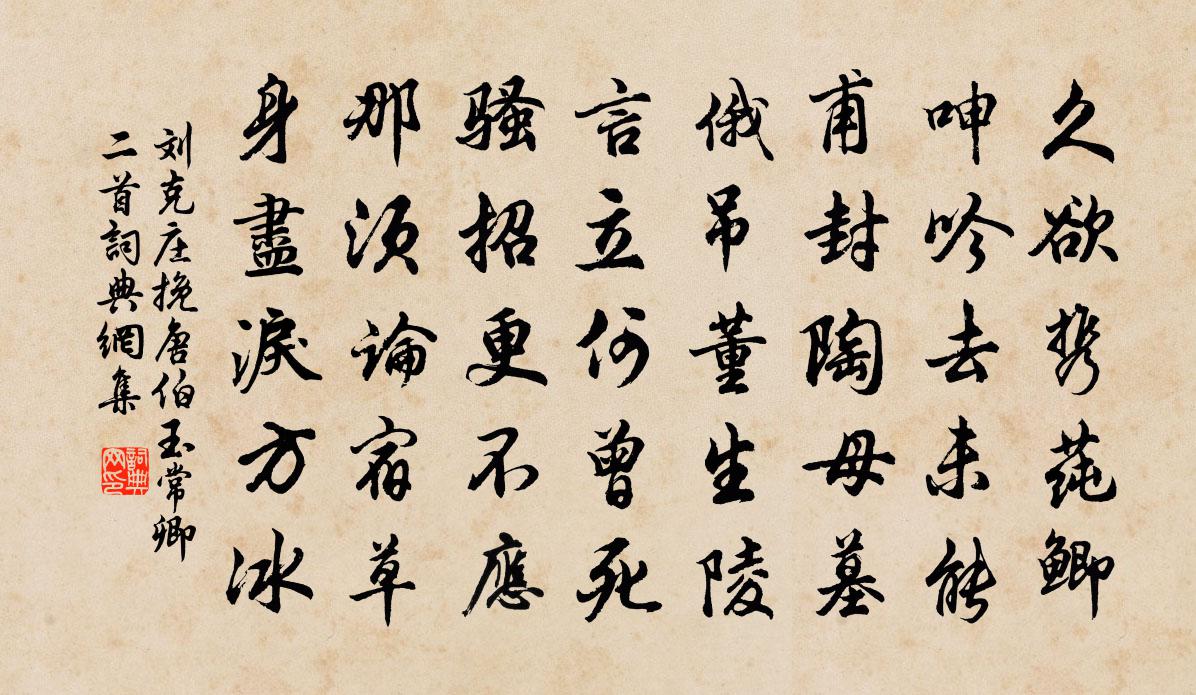 久欲携莼鲫
呻吟去未能
甫封陶母墓
俄吊董生陵
言立何曾死
骚招更不應
那须論宿草
身盡淚方冰
刘克庄挽唐伯玉常卿
二首詞典網集
詞典
网印